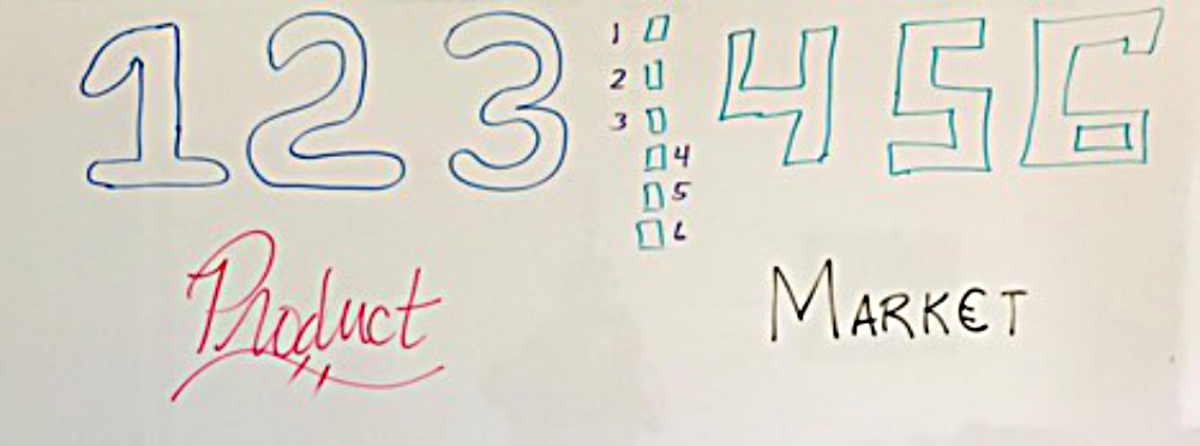 1 2 3
1
2
3
4
5
6
4 5 6
Product
MARKET